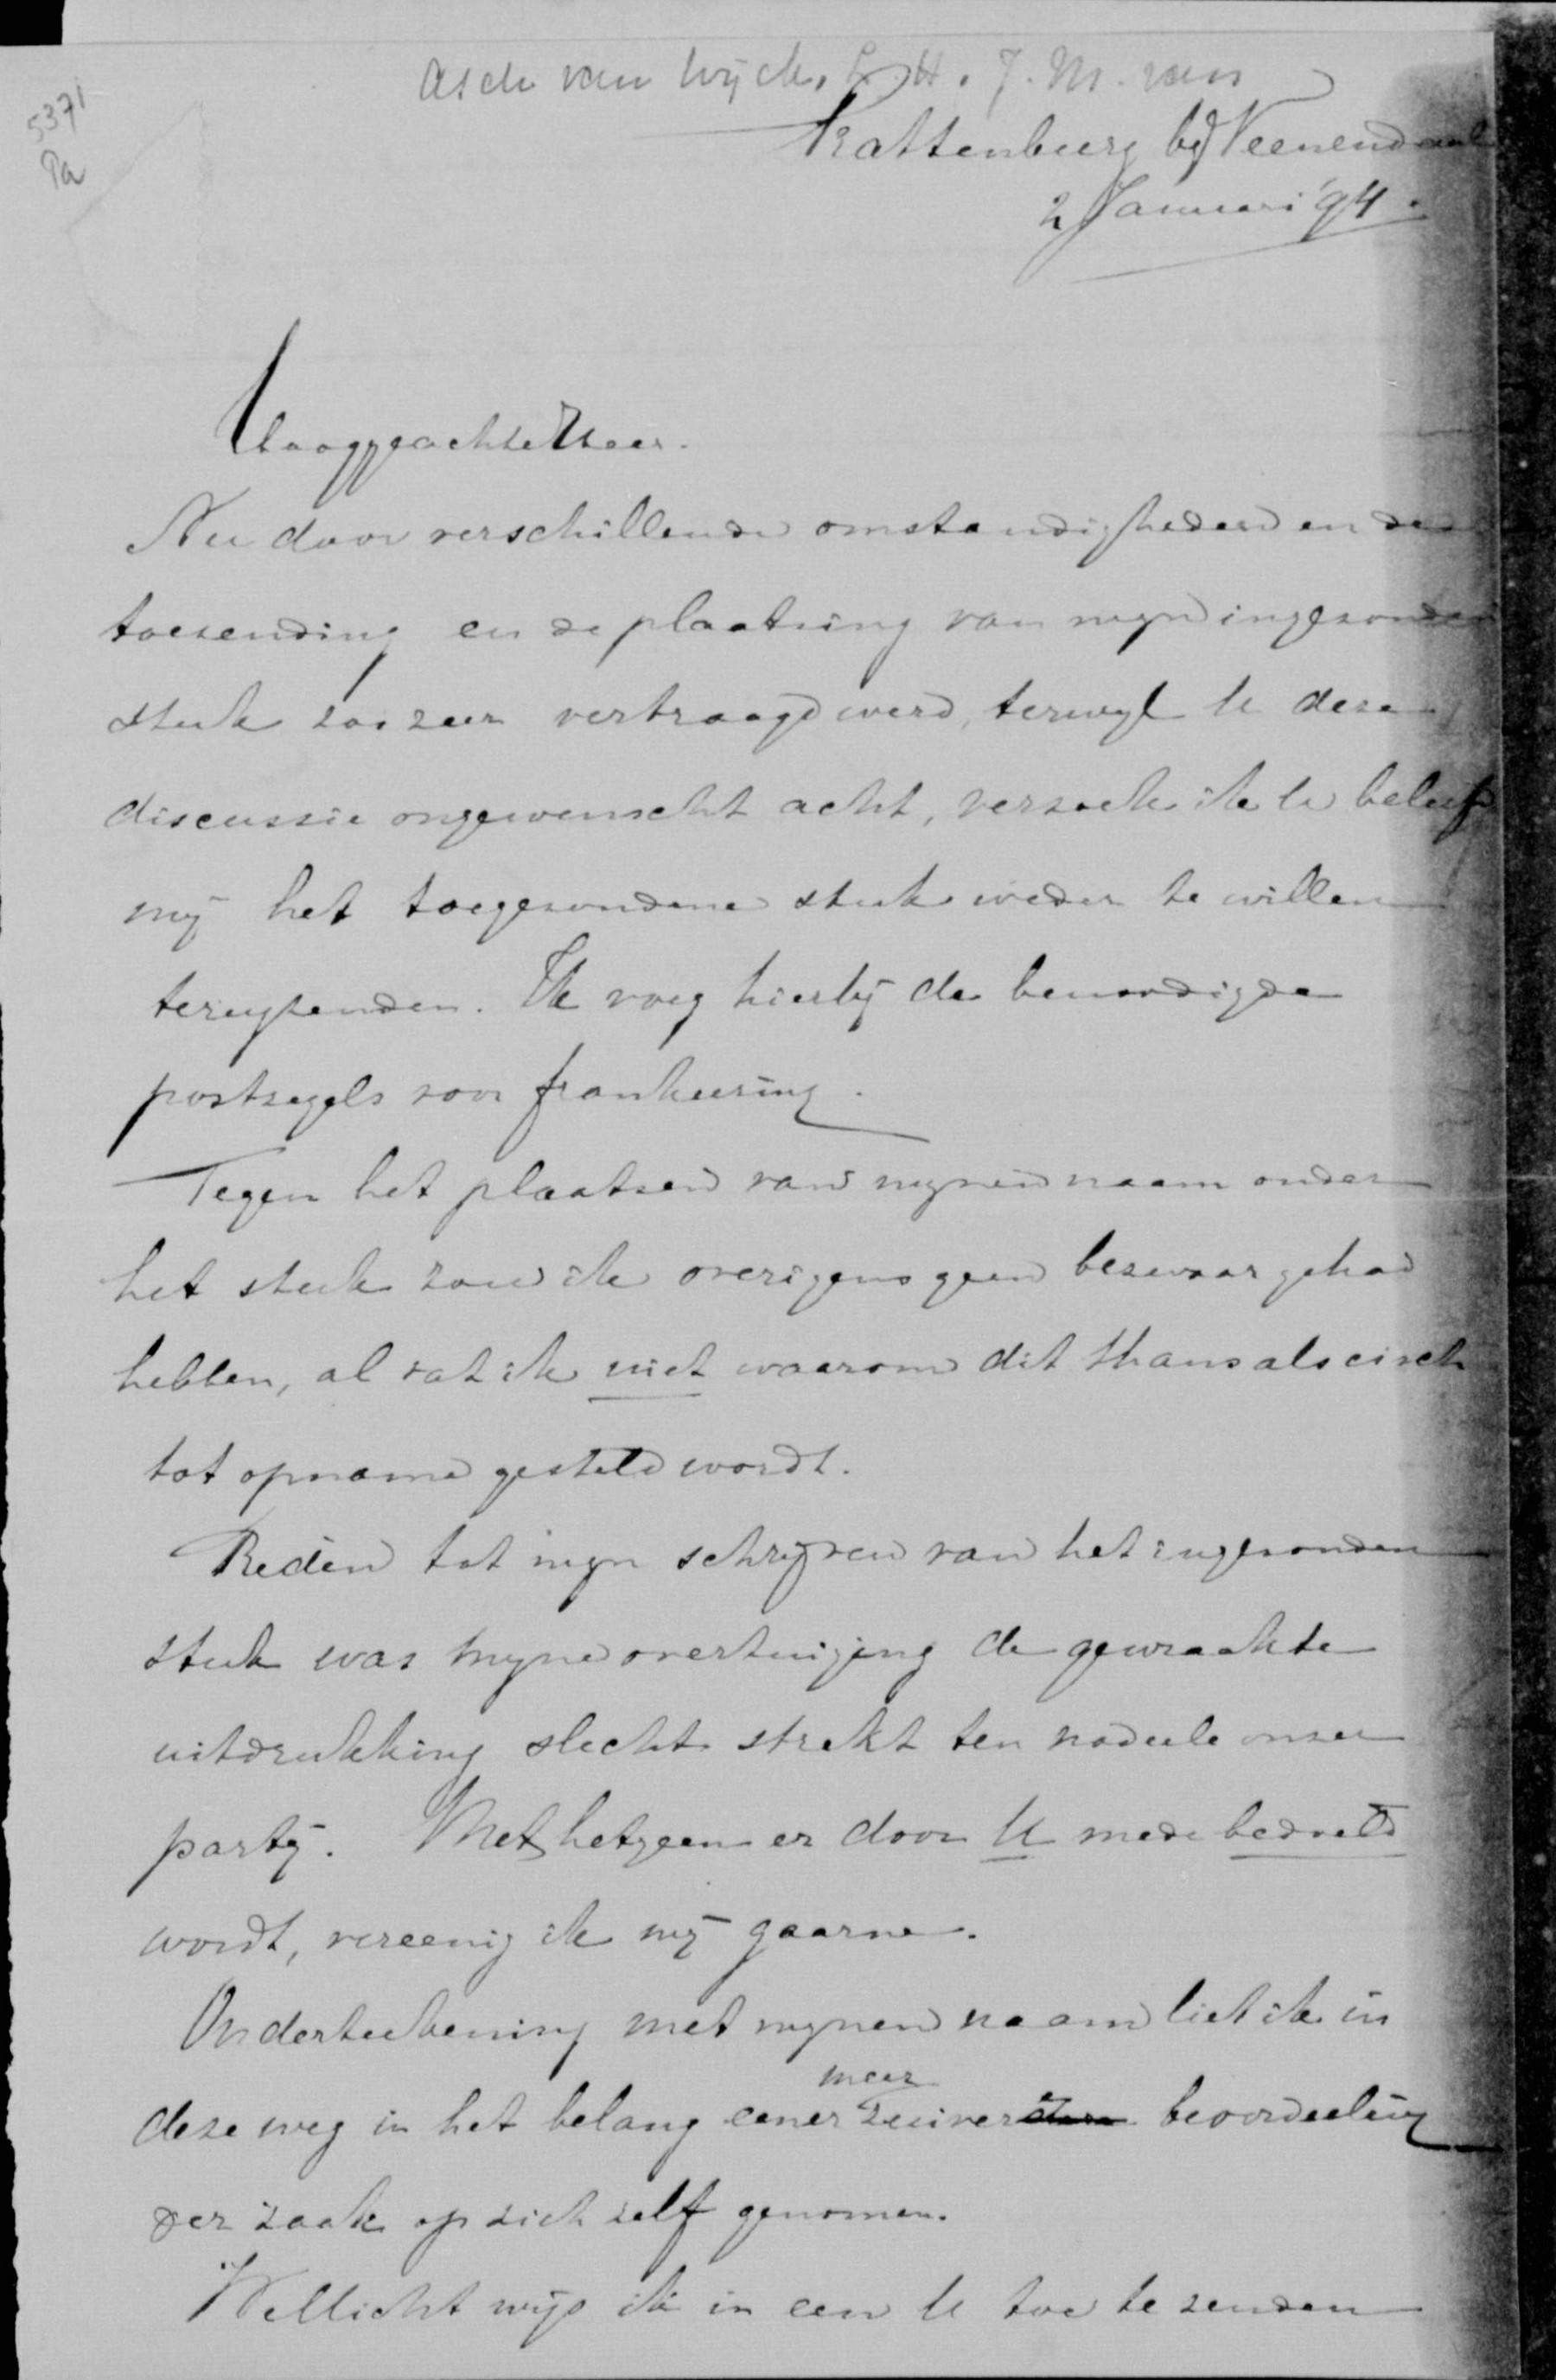 5371
Pa
Asch van Wijck, L. H. J. M. van
Prattenburg bij Veenendaal
2 Januari '94.
Hooggeachte Heer.
Nu door verschillende omstandigheden en de
toezending en de plaatsing van mijn ingezonden
stuk zoo zeer vertraagd werd, terwijl U deze
discussie ongewenscht acht, verzoek ik U beleefd
mij het toegezondene stuk weder te willen
terugzenden. Ik voeg hierbij de benoodigde
postzegels voor frankeering.
Tegen het plaatsen van mijnen naam onder
het stuk zou ik overigens geen bezwaar gehad
hebben, al vat ik niet waarom dit thans als eisch
tot opname gesteld wordt.
Reden tot mijn schrijven van het ingezonden
stuk was mijne overtuiging de gewraakte
uitdrukking slechts strekt ten nadeele onzer
partij. Met hetgeen er door U mede bedoeld
wordt, vereenig ik mij gaarne.
Onderteekening met mijnen naam liet ik in
meer
deze weg in het belang eener zuiver beoordeeling
der zaak op zich zelf genomen.
Wellicht wijs ik in een U toe te zenden